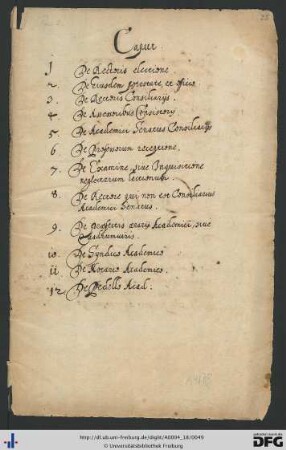 28
Caput
1 De Rectoris electione
2. De Eiusdem potestate et officio
3. De Rectoris Consiliarijs.
4 De Assessoribus Consistorij
5 De Academici Senatus Consiliarijs
6 De Professorum receptione.
7. De Examine, siue Inquisitione
neglectarum lectionum.
8. De Rectore qui non est Consiliarius
Academici Senatus.
9. De Academici, siue
10 De Syndico Academico
11 De Notario Academico.
12 De Pedello Acad:
http://dl.ub.uni-freiburg.de/diglit/A0004_18/0049
© Universitätsbibliothek Freiburg
gefördert durch die
DFG